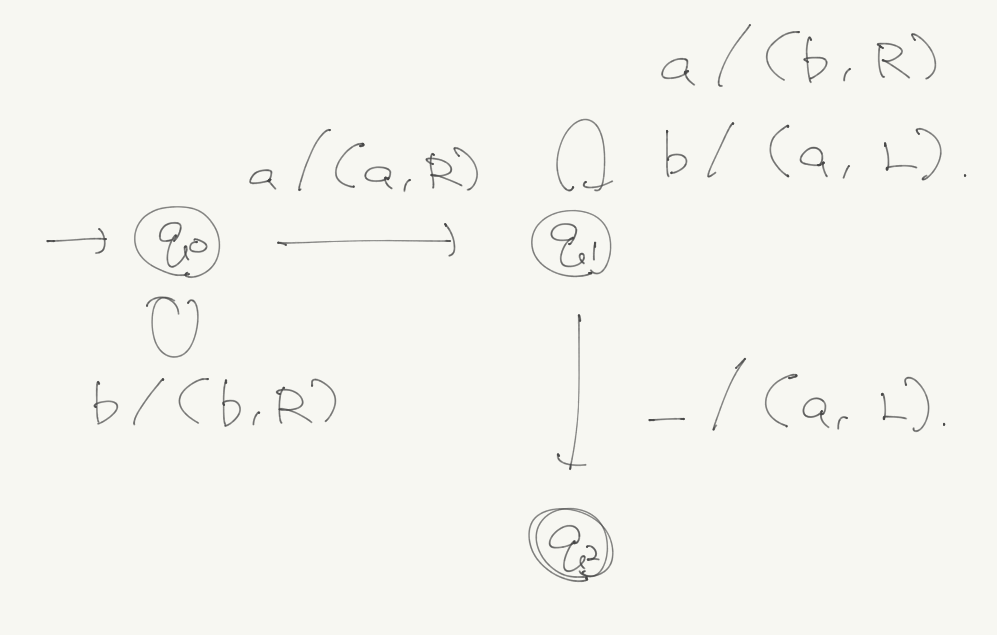 a / (b, R)
a / (a, R)
b / (a, L).
q0
q1
b / (b, R)
_ / (a, L).
q2